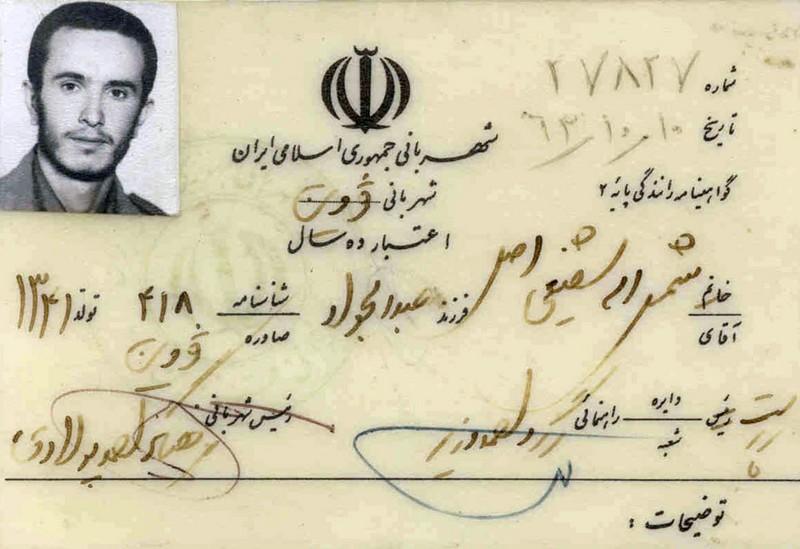 شماره ۲۷۸۲۷
تاریخ ۶۳/۱۰/۱۰
شهربانی جمهوری اسلامی ایران
گواهینامه رانندگی پایه ۲
شهربانی قزوین
اعتبار ده سال
خانم آقای شمس اله شفیعی اصل فرزند عبدالجواد شناسنامه ۴۱۸ تولد ۱۳۴۱
صادره قزوین
رئیس دایره شعبه راهنمائی
رئیس شهربانی
توضیحات :